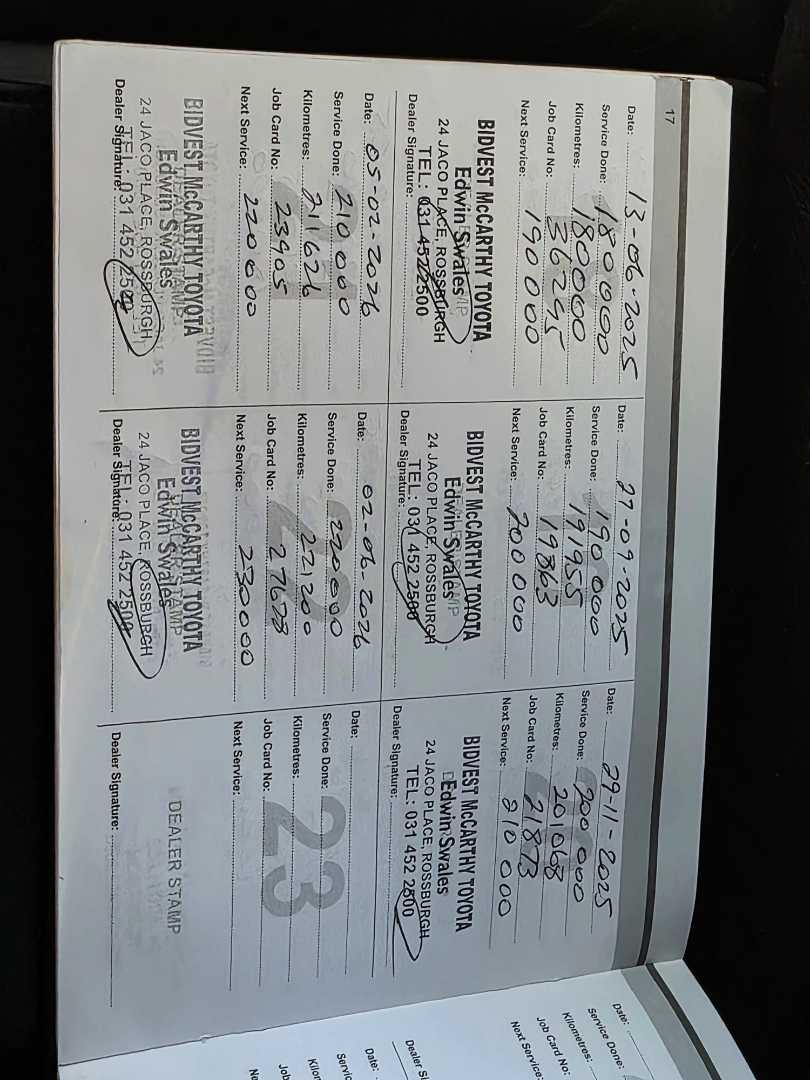 17
Date: 13-06-2025
Service Done: 180000
Kilometres: 180000
Job Card No: 36245
Next Service: 190000
BIDVEST McCARTHY TOYOTA
Edwin Swales
24 JACO PLACE, ROSSBURGH
TEL: 031 452 2500
Dealer Signature:
Date: 27-09-2025
Service Done: 190000
Kilometres: 191955
Job Card No: 19863
Next Service: 200000
BIDVEST McCARTHY TOYOTA
Edwin Swales
24 JACO PLACE, ROSSBURGH
TEL: 031 452 2500
Dealer Signature:
Date: 29-11-2025
Service Done: 200000
Kilometres: 201068
Job Card No: 21873
Next Service: 210000
BIDVEST McCARTHY TOYOTA
Edwin Swales
24 JACO PLACE, ROSSBURGH
TEL: 031 452 2500
Dealer Signature:
Date: 05-02-2026
Service Done: 210000
Kilometres: 211626
Job Card No: 23905
Next Service: 220000
BIDVEST McCARTHY TOYOTA
DEALER STAMP
Edwin Swales
24 JACO PLACE, ROSSBURGH
TEL: 031 452 2500
Dealer Signature:
Date: 02-06-2026
Service Done: 220000
Kilometres: 221200
Job Card No: 27678
Next Service: 230000
BIDVEST McCARTHY TOYOTA
DEALER STAMP
Edwin Swales
24 JACO PLACE, ROSSBURGH
TEL: 031 452 2500
Dealer Signature:
23
Date:
Service Done:
Kilometres:
Job Card No:
Next Service:
DEALER STAMP
Dealer Signature:
Date:
Service Done:
Kilometres:
Job Card No:
Next Service:
Date: